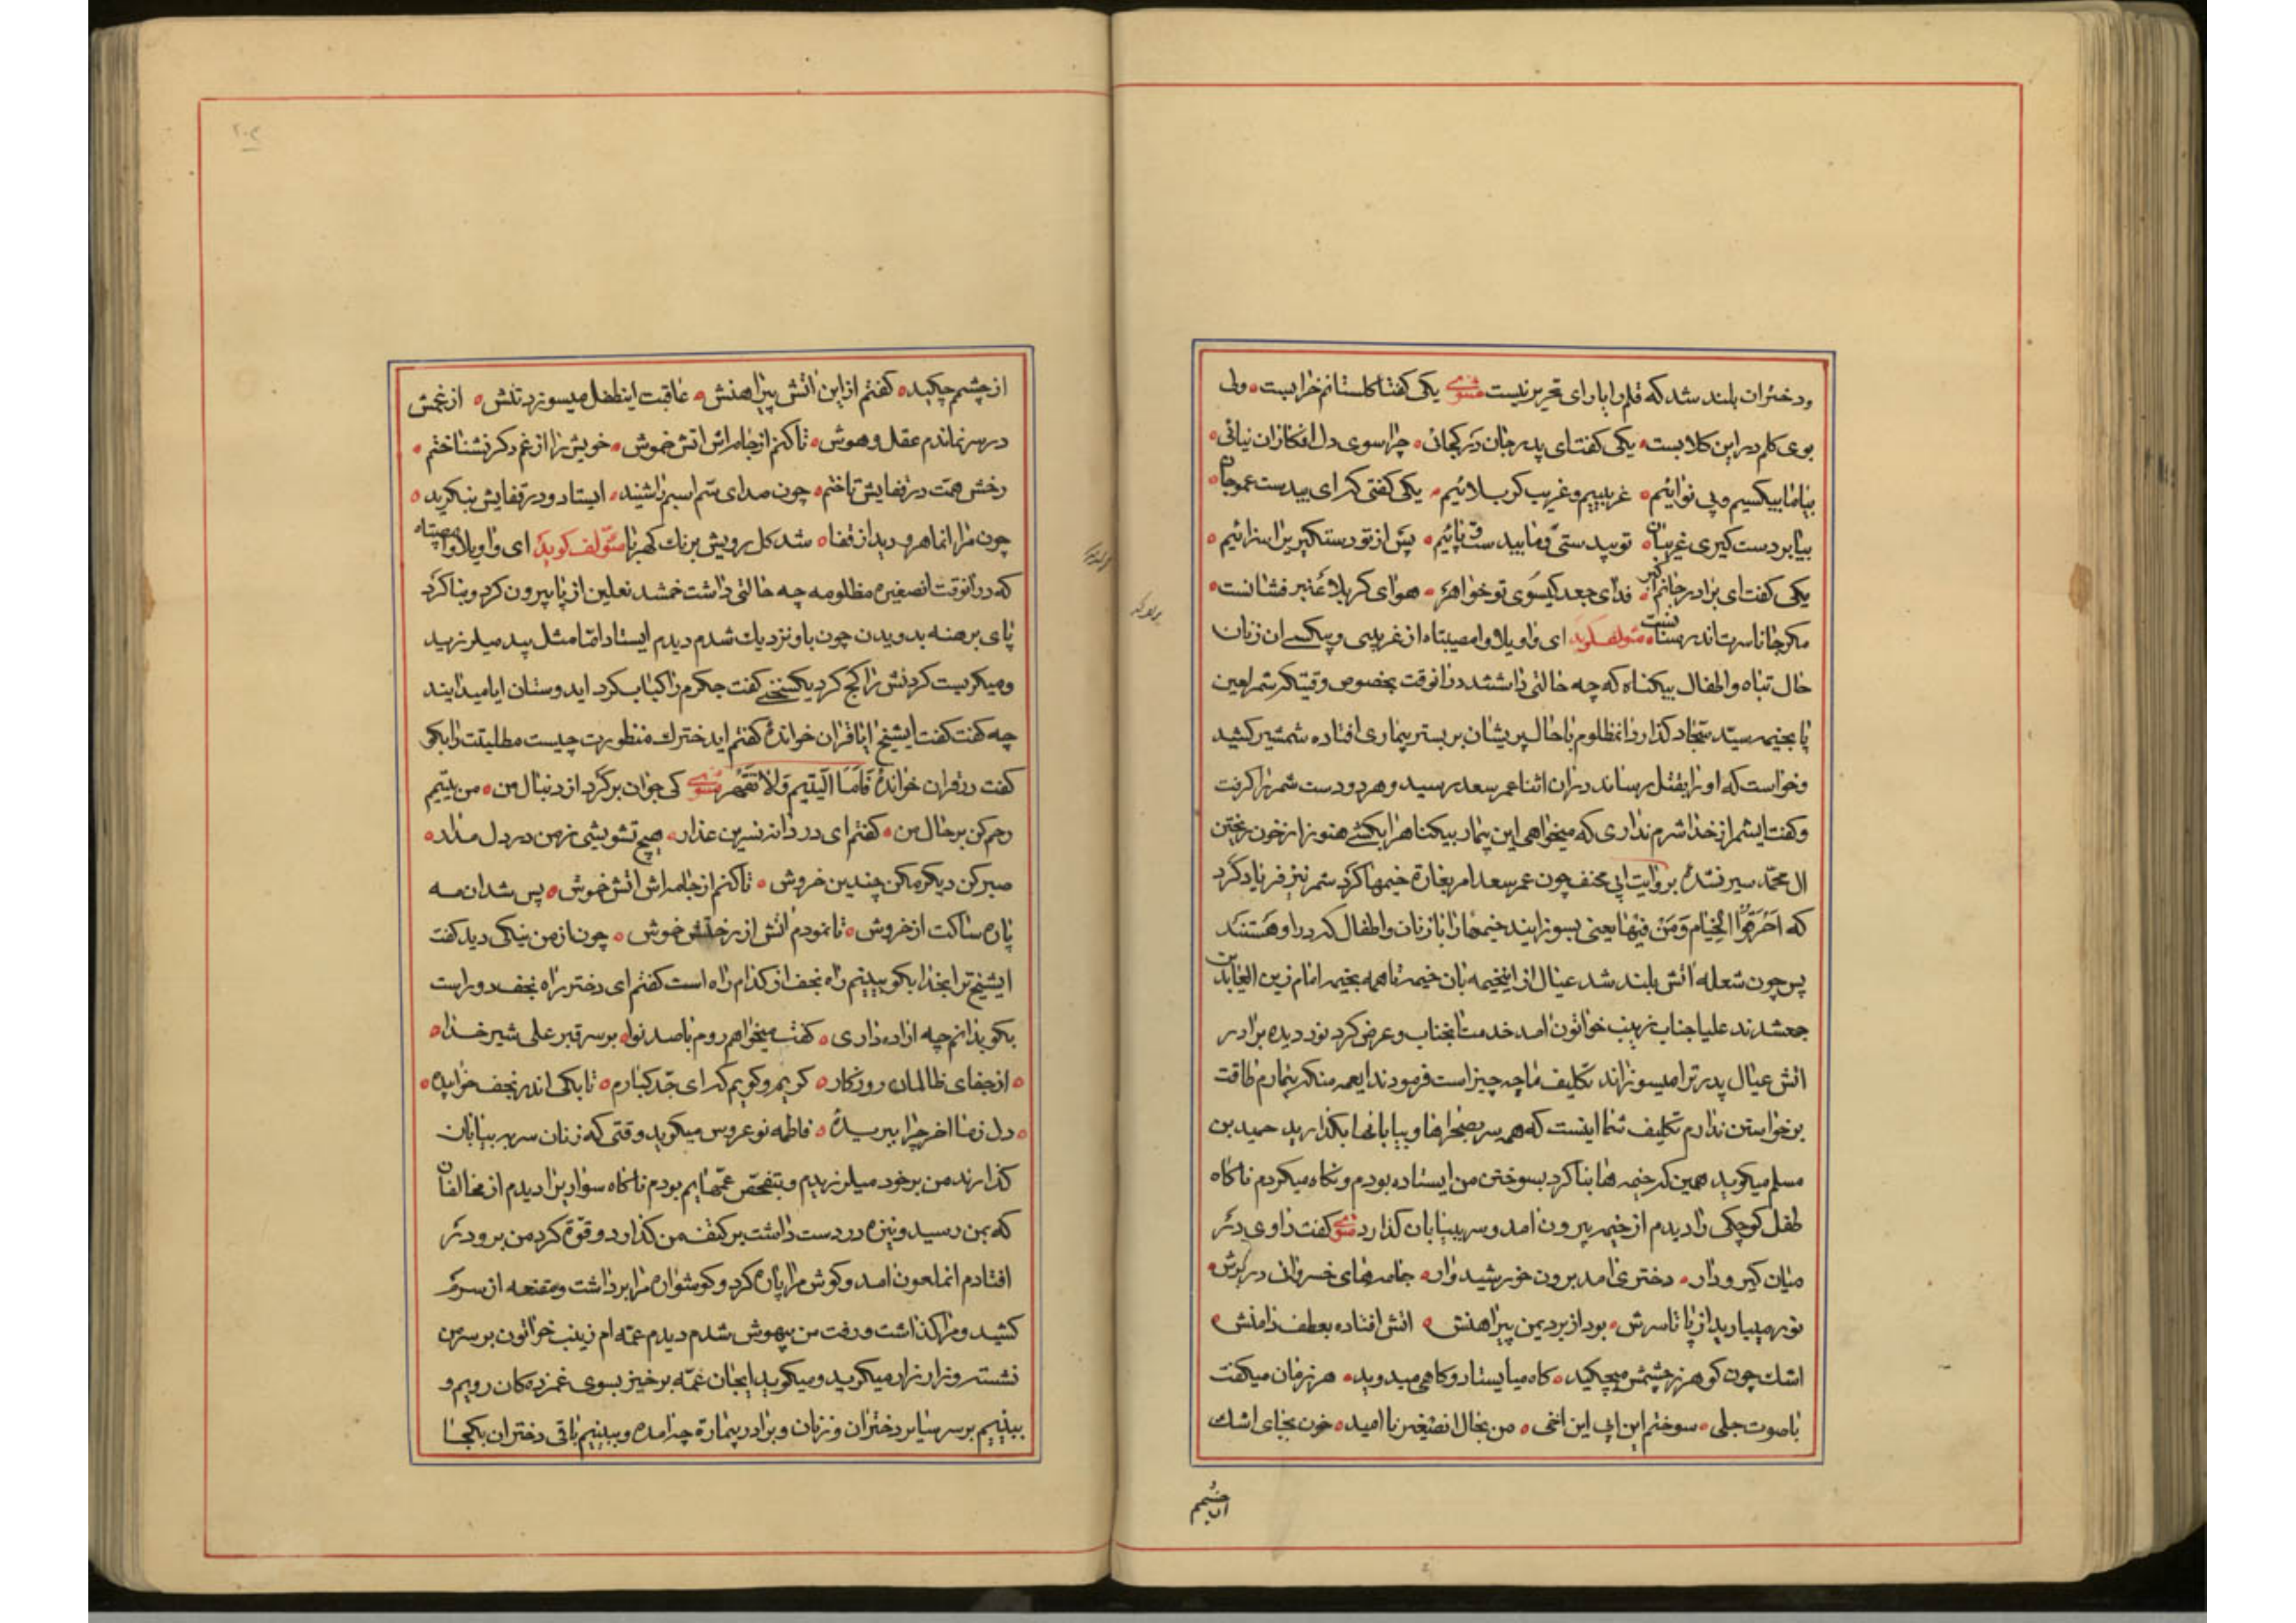 ودختران بلند شد که قلم را یارای تحریر نیست مثنوی یکی گفتا گلستانم خرابست ولی
بوی گلم در این گلابست یکی گفت ای پدر جان در کجائی چرا سوی دل افکاران نیائی
بیا ما بیکسیم و بی نوائیم غریبیم و غریب کربلائیم یکی گفتی که ای بیدست عمو جان
بیا بر دست گیری غریبان تو بیدستی و ما بیدست و پائیم پس از تو دستگیر
یکی گفت ای برادر جانم اکبر فدای جعد گیسوی تو خواهر هوای کربلا عنبر فشانست
مگر جانا سرت اندر سنانست مؤلف گوید ای واویلا وامصیبتاه از غریبی و بیکسی ان زنان
حال تباه واطفال بیگناه که چه حالتی داشتند درانوقت بخصوص وقتیکه شمر لعین
پا بخیمه سید سجاد گذارد انمظلوم با حال پریشان بر بستر بیماری افتاده شمشیر کشید
وخواست که او را بقتل رساند دران اثنا عمر سعد رسید و هر دو دست شمر را گرفت
وگفت ایشمر از خدا شرم نداری که میخواهی این بیمار بیگناه را بکشی هنوز از خون ریختن
ال محمد سیر نشدهٔ بروایت ابی مخنف چون عمر سعد امر بغارة خیمها کرد شمر نیز فریاد کرد
که احرقوا الخیام ومن فیها یعنی بسوزانید خیمها را با زنان واطفال که در او هستند
پس چون شعله اتش بلند شد عیال از اینخیمه بان خیمه تا همه بخیمه امام زین العابدین
جمعشدند علیا جناب زینب خواتون امد خدمت انجناب وعرض کرد نور دیده برادر
اتش عیال پدر ترا میسوزاند تکلیف ما چه چیز است فرمودند ایعمه منکه بیمارم طاقت
برخواستن ندارم تکلیف شما اینست که همه سر بصحراها و بیابانها بگذارید حمید بن
مسلم میگوید همین که خیمه ها بنا کرد بسوختن من ایستاده بودم ونگاه میکردم ناگاه
طفل کوچکی را دیدم از خیمه بیرون امد وسر به بیابان گذارد مثنوی گفت راوی در
میان گیرودار دختری امد برون خورشیدوار جامه های خسروان در برش
نور میبارید از پا تا سرش بود از برد یمن پیراهنش اتش افتاده بعطف دامنش
اشک چون گوهر ز چشمش میچکید گاه میایستاد و گاهی میدوید هر زمان میگفت
با صوت جلی سوختم این ابی این اخی من بحال انصغیره نا امید خون بجای اشک
از چشمم
از چشمم چکید گفتم از این اتش پیراهنش عاقبت اینطفل میسوزد تنش از غمش
در سر نماندم عقل و هوش تا کنم از جامه اش اتش خموش خویش را از غم دگر نشناختم
رخش همت در قفایش تاختم چون صدای سم اسبم را شنید ایستاد و در قفایش بنگرید
چون مرا انماهرو دید از قفا شد گل رویش برنگ کهربا مؤلف گوید ای واویلا وامصیبتاه
که درانوقت انصغیره مظلومه چه حالتی داشت خمشد نعلین از پا بیرون کرد و بنا کرد
پای برهنه بدویدن چون باو نزدیک شدم دیدم ایستاد اما مثل بید میلرزید
ومیگریست گردنش را کج کرد یکسخنی گفت جگرم را کباب کرد ایدوستان ایا میدانید
چه گفت گفت ایشیخ ایا قران خواندهٔ گفتم ایدخترک منظورت چیست مطلبت را بگو
گفت در قران خواندهٔ فاما الیتیم فلا تقهر مثنوی کی جوان برگرد از دنبال من من یتیم
رحم کن بر حال من گفتم ای دردانه نسرین عذار هیچ تشویشی ز من در دل مدار
صبر کن دیگر مکن چندین خروش تا کنم از جامه اش اتش خموش پس شد ان مه
پاره ساکت از خروش تا نمودم اتش از رختش خموش چون از من نیکی دید گفت
ایشیخ ترا بخدا بگو ببینم راه نجف از کدام راه است گفتم ای دختر راه نجف دور است
بگو بدانم چه اراده داری گفت میخواهم روم با صد نوا بر سر قبر علی شیر خدا
از جفای ظالمان روزگار گریم و گویم که ای جد کبارم تا بکی اندر نجف خوابیدهٔ
دل ز ما اخر چرا ببریدهٔ فاطمه نوعروس میگوید وقتی که زنان سر به بیابان
گذارند من بر خود میلرزیدم و بتفحص عمهایم بودم ناگاه سواریرا دیدم از مخالفان
که بمن رسید ونیزه در دست داشت بر کتف من گذارد و قوة کرد من برو در
افتادم انملعون امد وگوش مرا پاره کرد و گوشواره مرا برداشت ومقنعه از سرم
کشید ومرا گذاشت ورفت من بیهوش شدم دیدم عمه ام زینب خواتون بر سرمن
نشسته وزار زار میگرید ومیگوید ایجان عمه برخیز بسوی غمزدگان رویم و
ببینیم بر سر سایر دختران و زنان و برادر بیمارت چه امده وببینیم باقی دختران بکجا